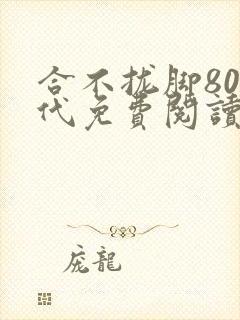 合不拢脚80
代免費閱讀
庞龍